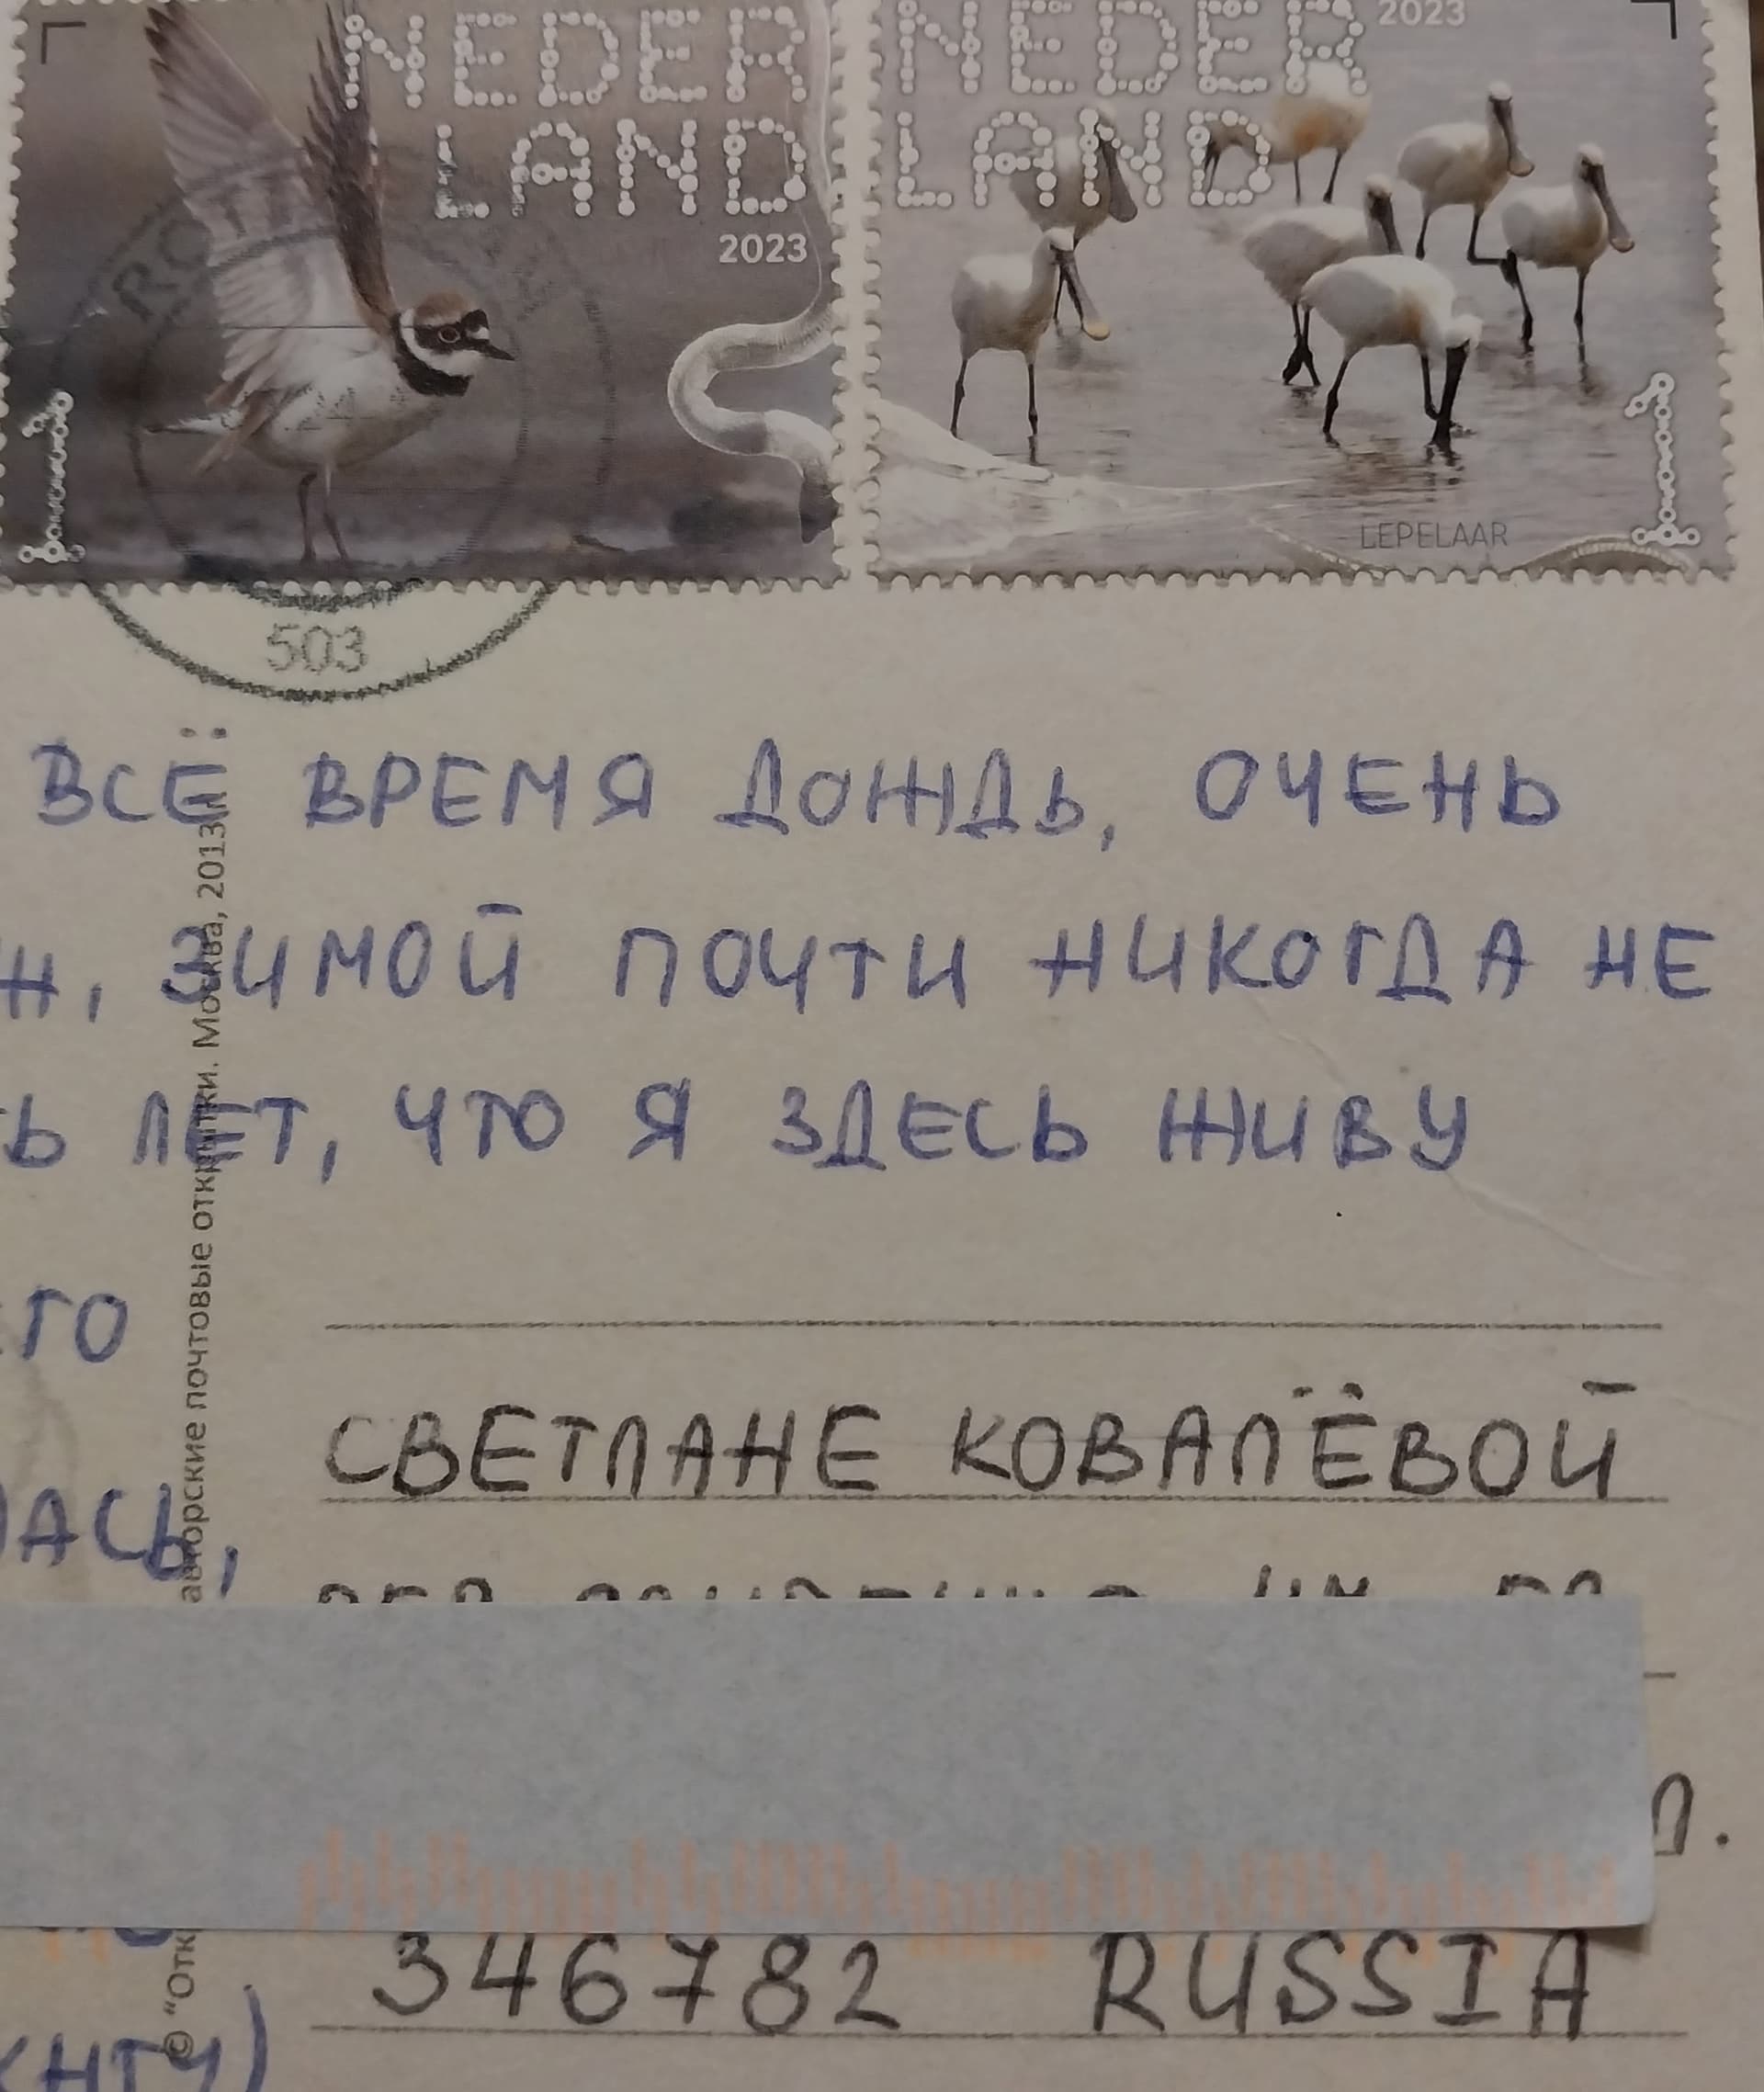 NEDER
LAND
2023
1
NEDER
LAND
2023
LEPELAAR
1
503
ВСЁ ВРЕМЯ ДОЖДЬ, ОЧЕНЬ
ЗИМОЙ ПОЧТИ НИКОГДА НЕ
ЛЕТ, ЧТО Я ЗДЕСЬ ЖИВУ
СВЕТЛАНЕ КОВАЛЁВОЙ
346782 RUSSIA
авторские почтовые открытки. Москва, 2013